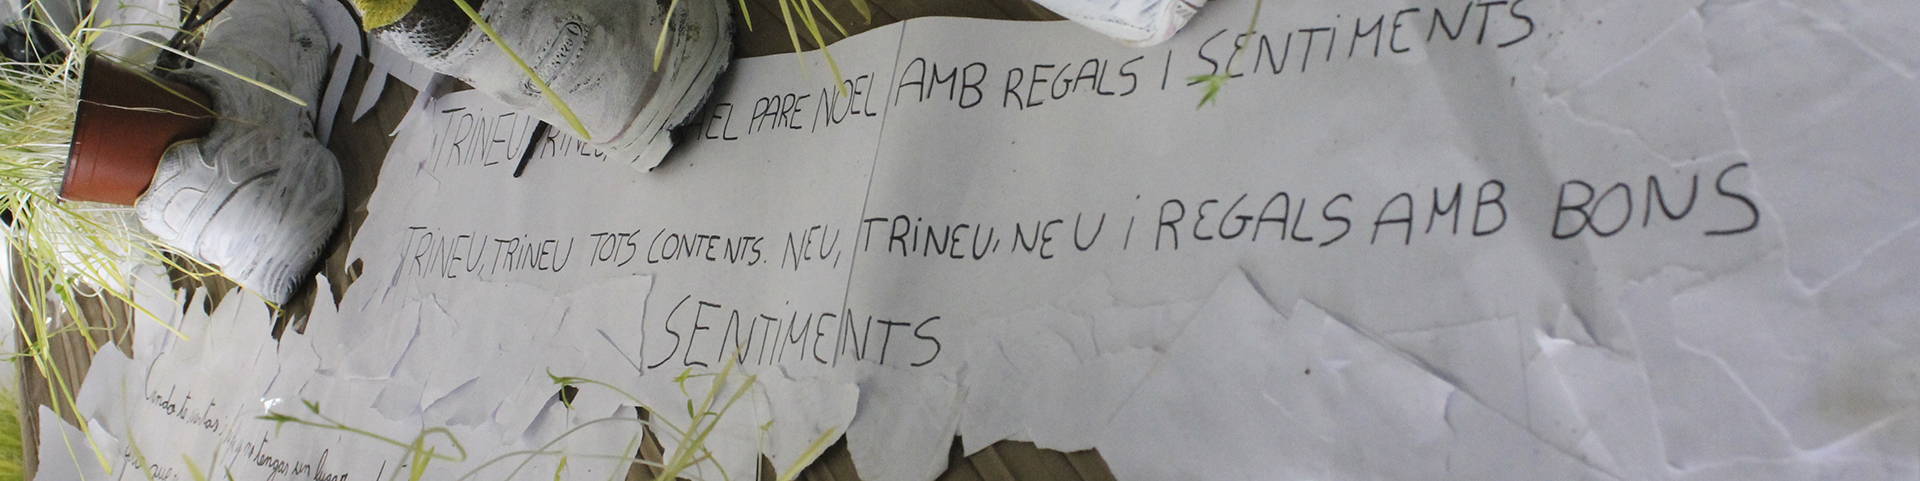 TRINEU, TRINEU EL PARE NOEL AMB REGALS I SENTIMENTS.
TRINEU, TRINEU TOTS CONTENTS. NEU, TRINEU, NEU i REGALS AMB BONS
SENTIMENTS
no tengas un lugar